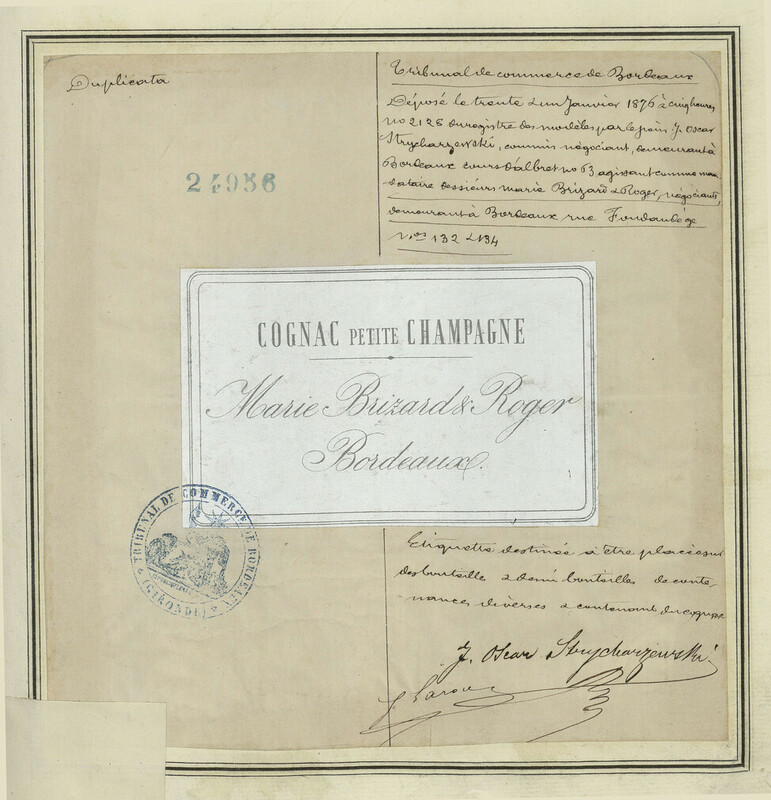 Duplicata
24956
Tribunal de commerce de Bordeaux
Déposé le trente & un Janvier 1876 à cinq heures
no 2128 du registre des modèles par le
J. Oscar
Strycharzewski, commis négociant, demeurant à
Bordeaux cours d'albret no 63 agissant comme man
dataire des sieurs marie Brizard & Roger, négociants,
demeurant à Bordeaux rue Fondaudège
nos 132 & 134
COGNAC PETITE CHAMPAGNE
Marie Brizard & Roger
Bordeaux.
TRIBUNAL DE COMMERCE DE BORDEAUX
(GIRONDE)
Etiquette destinée à être placée sur
des bouteille & demi bouteilles de conte
nances diverses & contenant du cognac
J. Oscar Strycharzewski